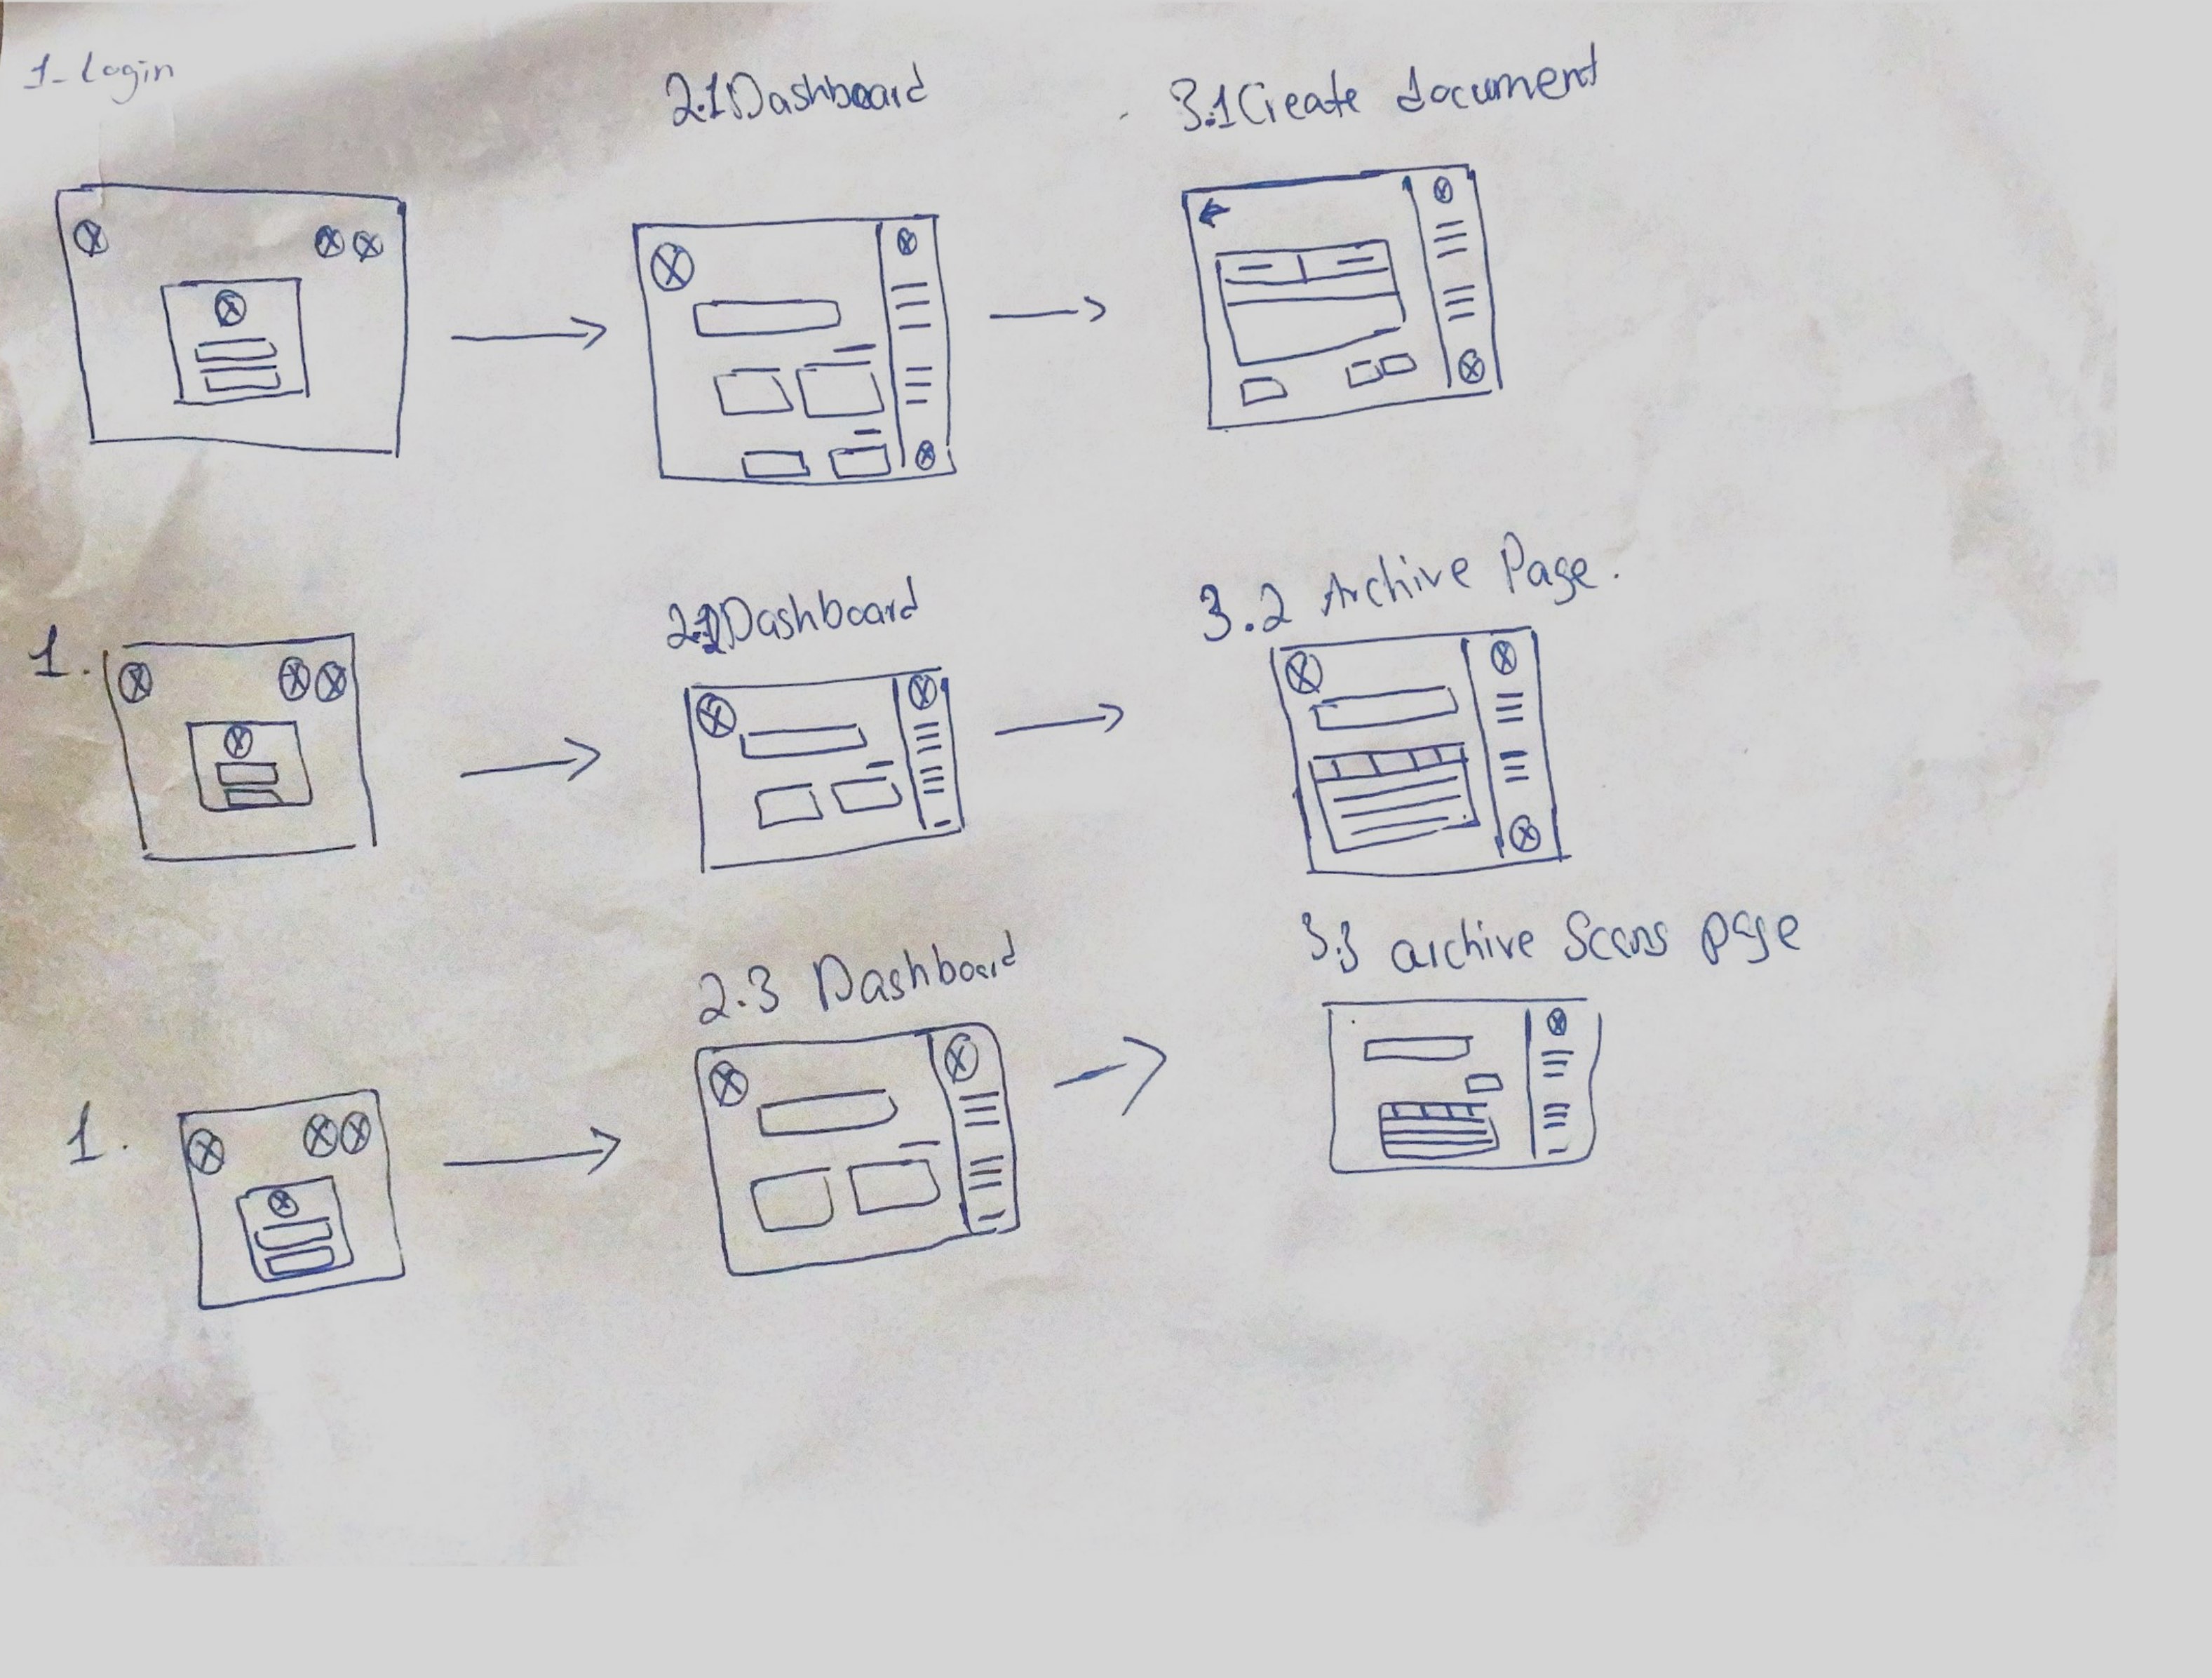 1- Login
2.1 Dashboard
3.1 Create document
1.
2.2 Dashboard
3.2 Archive Page.
1.
2.3 Dashboard
3.3 archive Scans page